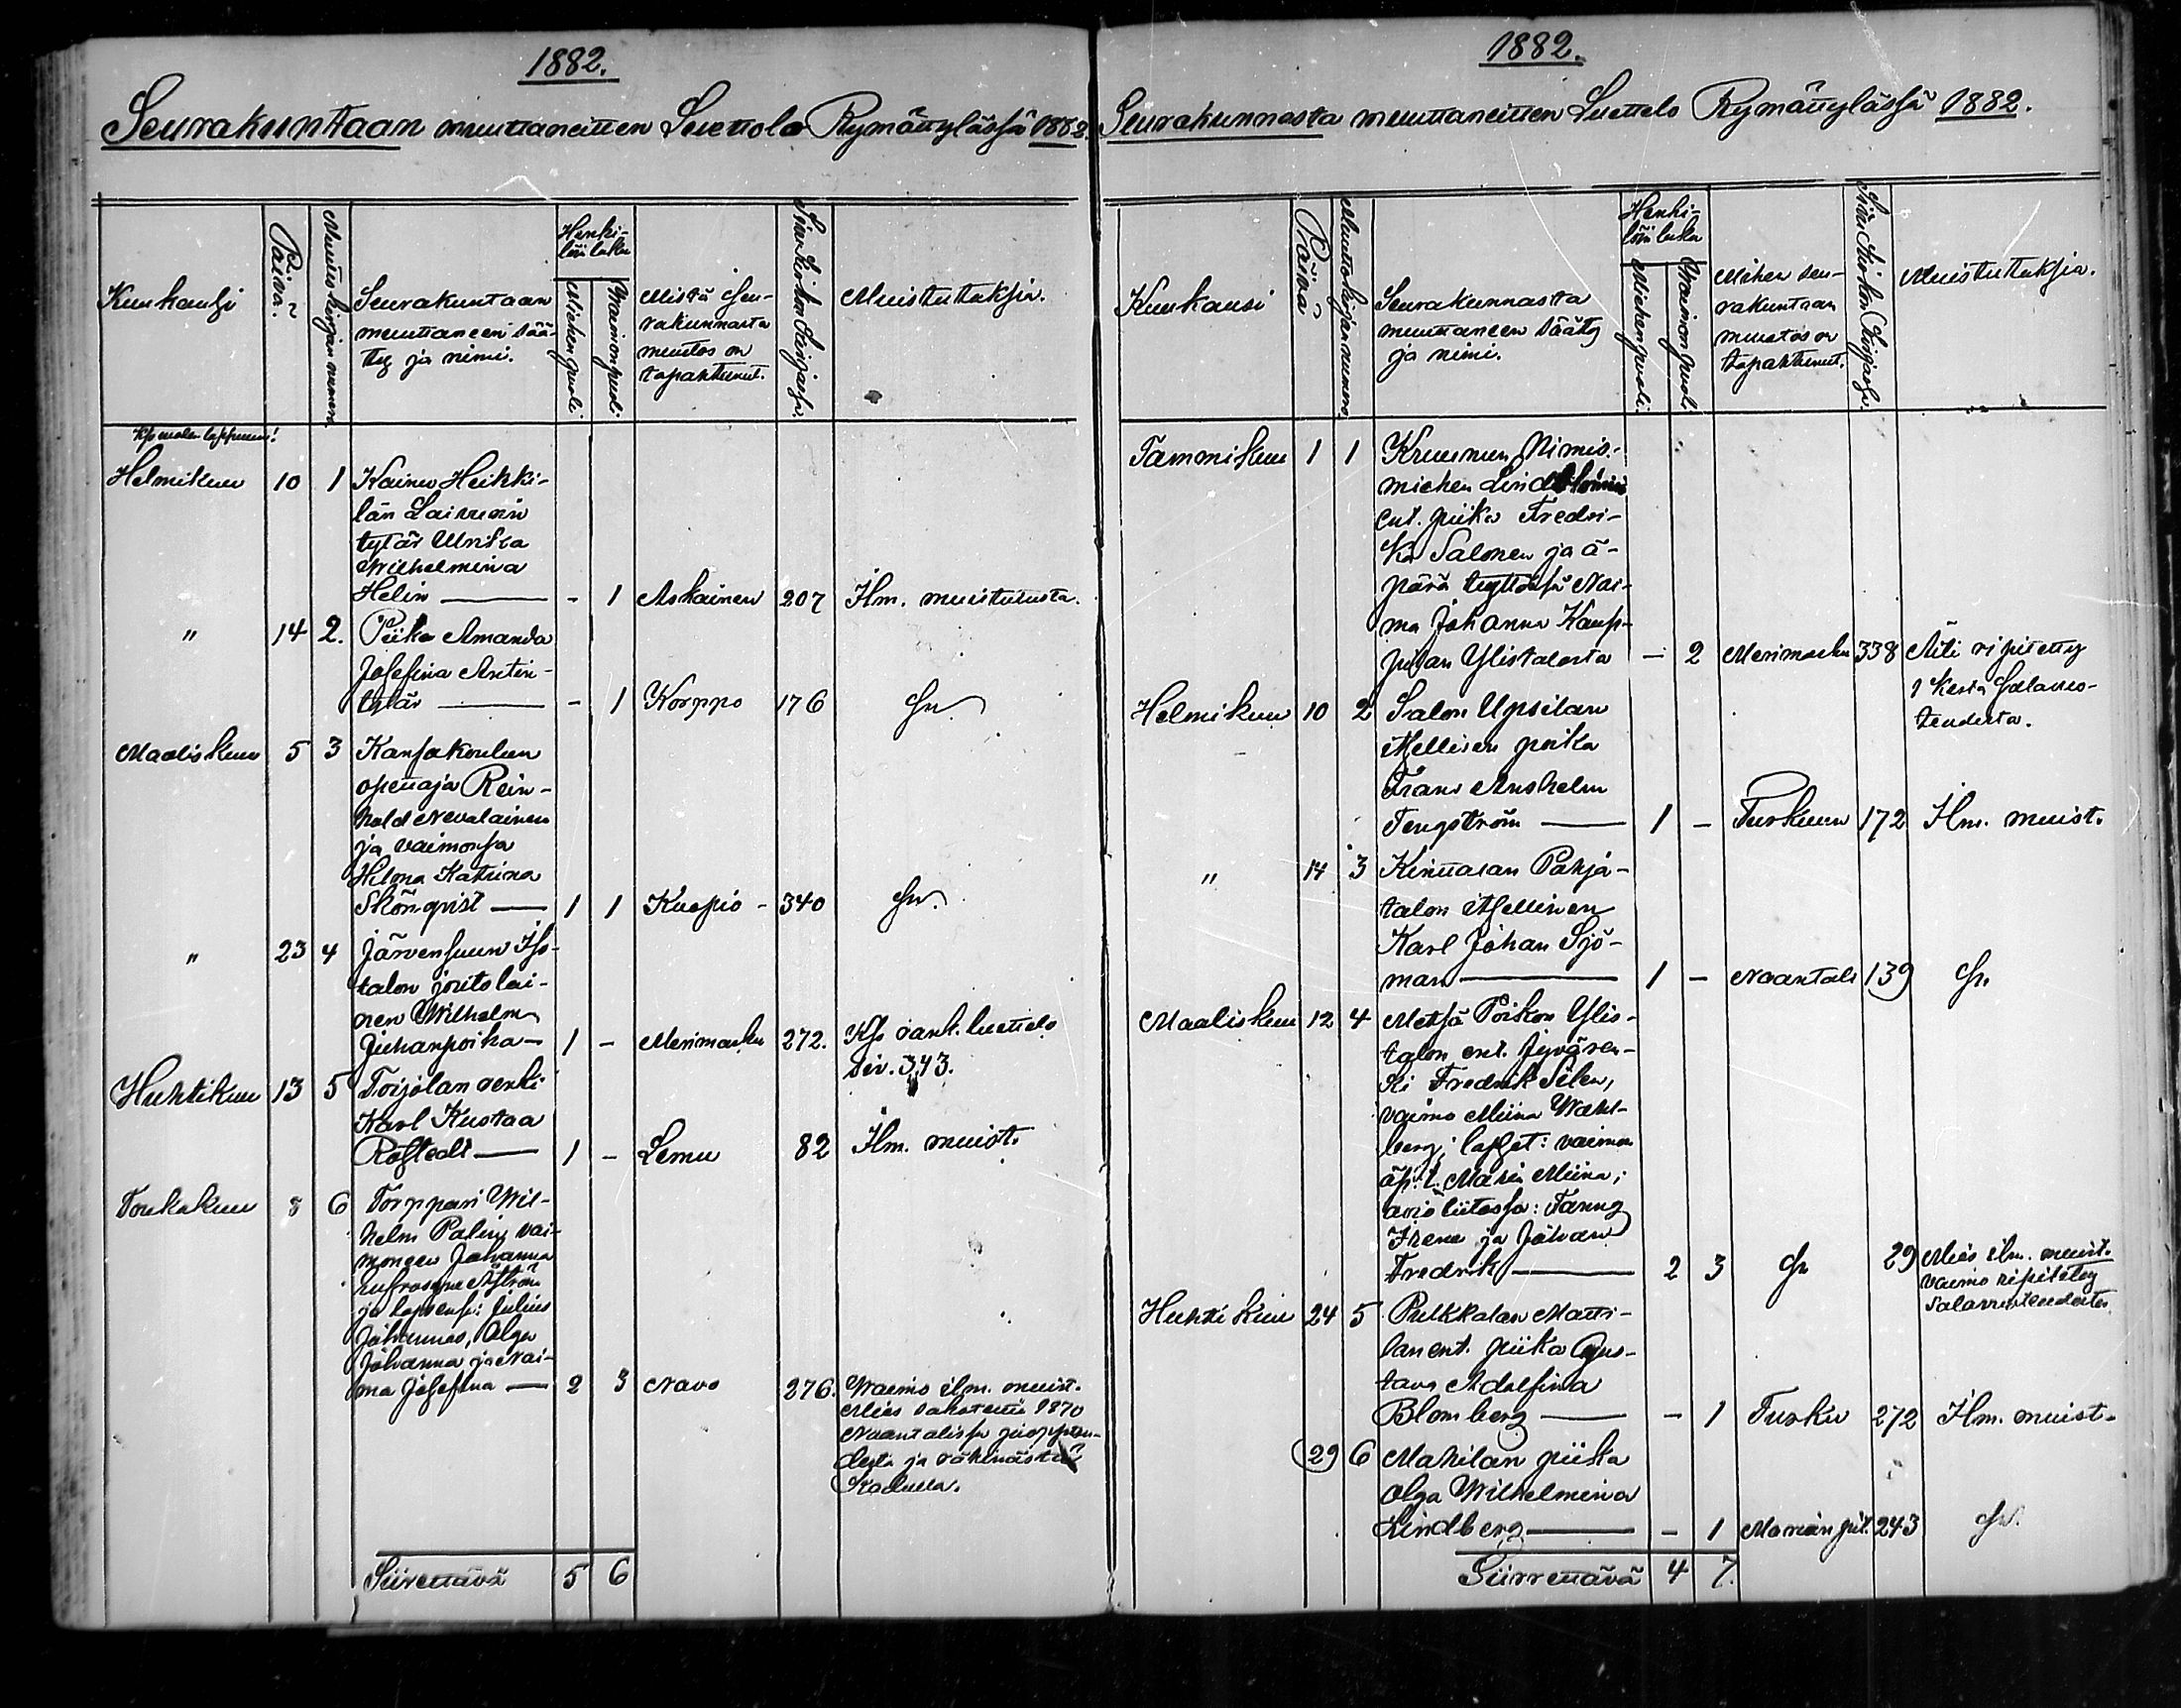 1882.
Seurakuntaan muuttaneitten Luettelo Rymättylässä 1882.
Kuukausi
Päivä.
Muuttokirjan numero
Seurakuntaan
muuttaneen sää-
ty ja nimi.
Henki-
löin luku
Miehenpuoli.
Waimonpuol.
Mistä seu-
rakunnasta
muutos on
tapahtunut.
Sivu Kirkon Kirjassa.
Muistutuksia.
Helmikuu 10 1 Kainu Heikki-
län Laivurin
tytär Ulrika
Wilhelmina
Helin — - 1 Askainen 207 Ilm. muistutusta.
" 14 2. Piika Amanda
Josefina Antin-
tytär — - 1 Korppo 176 Sn.
Maaliskuu 5 3 Kansakoulun
opettaja Rein-
hold Nevalainen
ja vaimonsa
Hilma Katriina
Skönqvist — 1 1 Kuopio - 340 Sn.
" 23 4 Järvensuun Iso-
talon joutolai-
nen Wilhelm
Juhanpoika — 1 - Merimasku 272. Kts sank. luettelo
siv. 343.
Huhtikuu 13 5 Torjolan renki
Karl Kustaa
Rostedt — 1 - Lemu 82 Ilm. muist.
Toukokuu 8 6 Torppari Wil-
helm Palin, vai-
moneen Johanna
Eufrosyne Åström
ja lapsensa: Julius
Johannes, Olga
Johanna ja Nai-
ma Josefina — 2 3 Navo 276. Waimo ilm. muist.
Mies sakotettu 1870
Naantalissa juopumu-
desta ja rähinästä
Kadulla.
Siirrettävä 5 6
1882.
Seurakunnasta muuttaneitten Luettelo Rymättylässä 1882.
Kuukausi
Päivä
Muuttokirjan numero.
Seurakunnasta
muuttaneen sääty
ja nimi.
Henki-
löin luku
Miehenpuoli.
Waimonpuol.
Mihen seu-
rakuntaan
muutos on
tapahtunut.
Sivu Kirkon Kirjassa.
Muistutuksia.
Tammikuu 1 1 Kruunun Nimis-
miehen Lindblömin
ent. piika Fredri-
ka Salonen ja ä-
pärä tyttönsä Nai-
ma Johanna Kaup-
pilan Ylistalosta — 2 Merimasku 338 Äiti ripitetty
1 kerta salavuo-
teudesta.
Helmikuu 10 2 Salon Upsilan
itsellisen poika
Frans Anshelm
Tengström — 1 - Turkuun 172 Ilm. muist.
" 14 3 Kinttalan Pohja-
talon itsellinen
Karl Johan Sjö-
man — 1 - Naantali 139 Sn.
Maaliskuu 12 4 Metsä Poikon Ylis-
talon ent. Jyvären-
ki Fredrik Silen,
vaimo Miina Wahl-
berg; lapset: vaimon
äp. t. Maria Miina;
avioliitossa: Fanny
Irene ja Johan
Fredrik — 2 3 Sn 29 Mies ilm. muist.
vaimo ripitetty
salavuoteudesta
Huhtikuu 24 5 Pulkkalan Matti-
lan ent. piika Gus-
tava Adolfina
Blomberg — - 1 Turku 272 Ilm. muist.
29 6 Mahilan piika
Olga Wilhelmina
Lindberg — - 1 Marian pit. 243 Sn.
Siirrettävä 4 7.